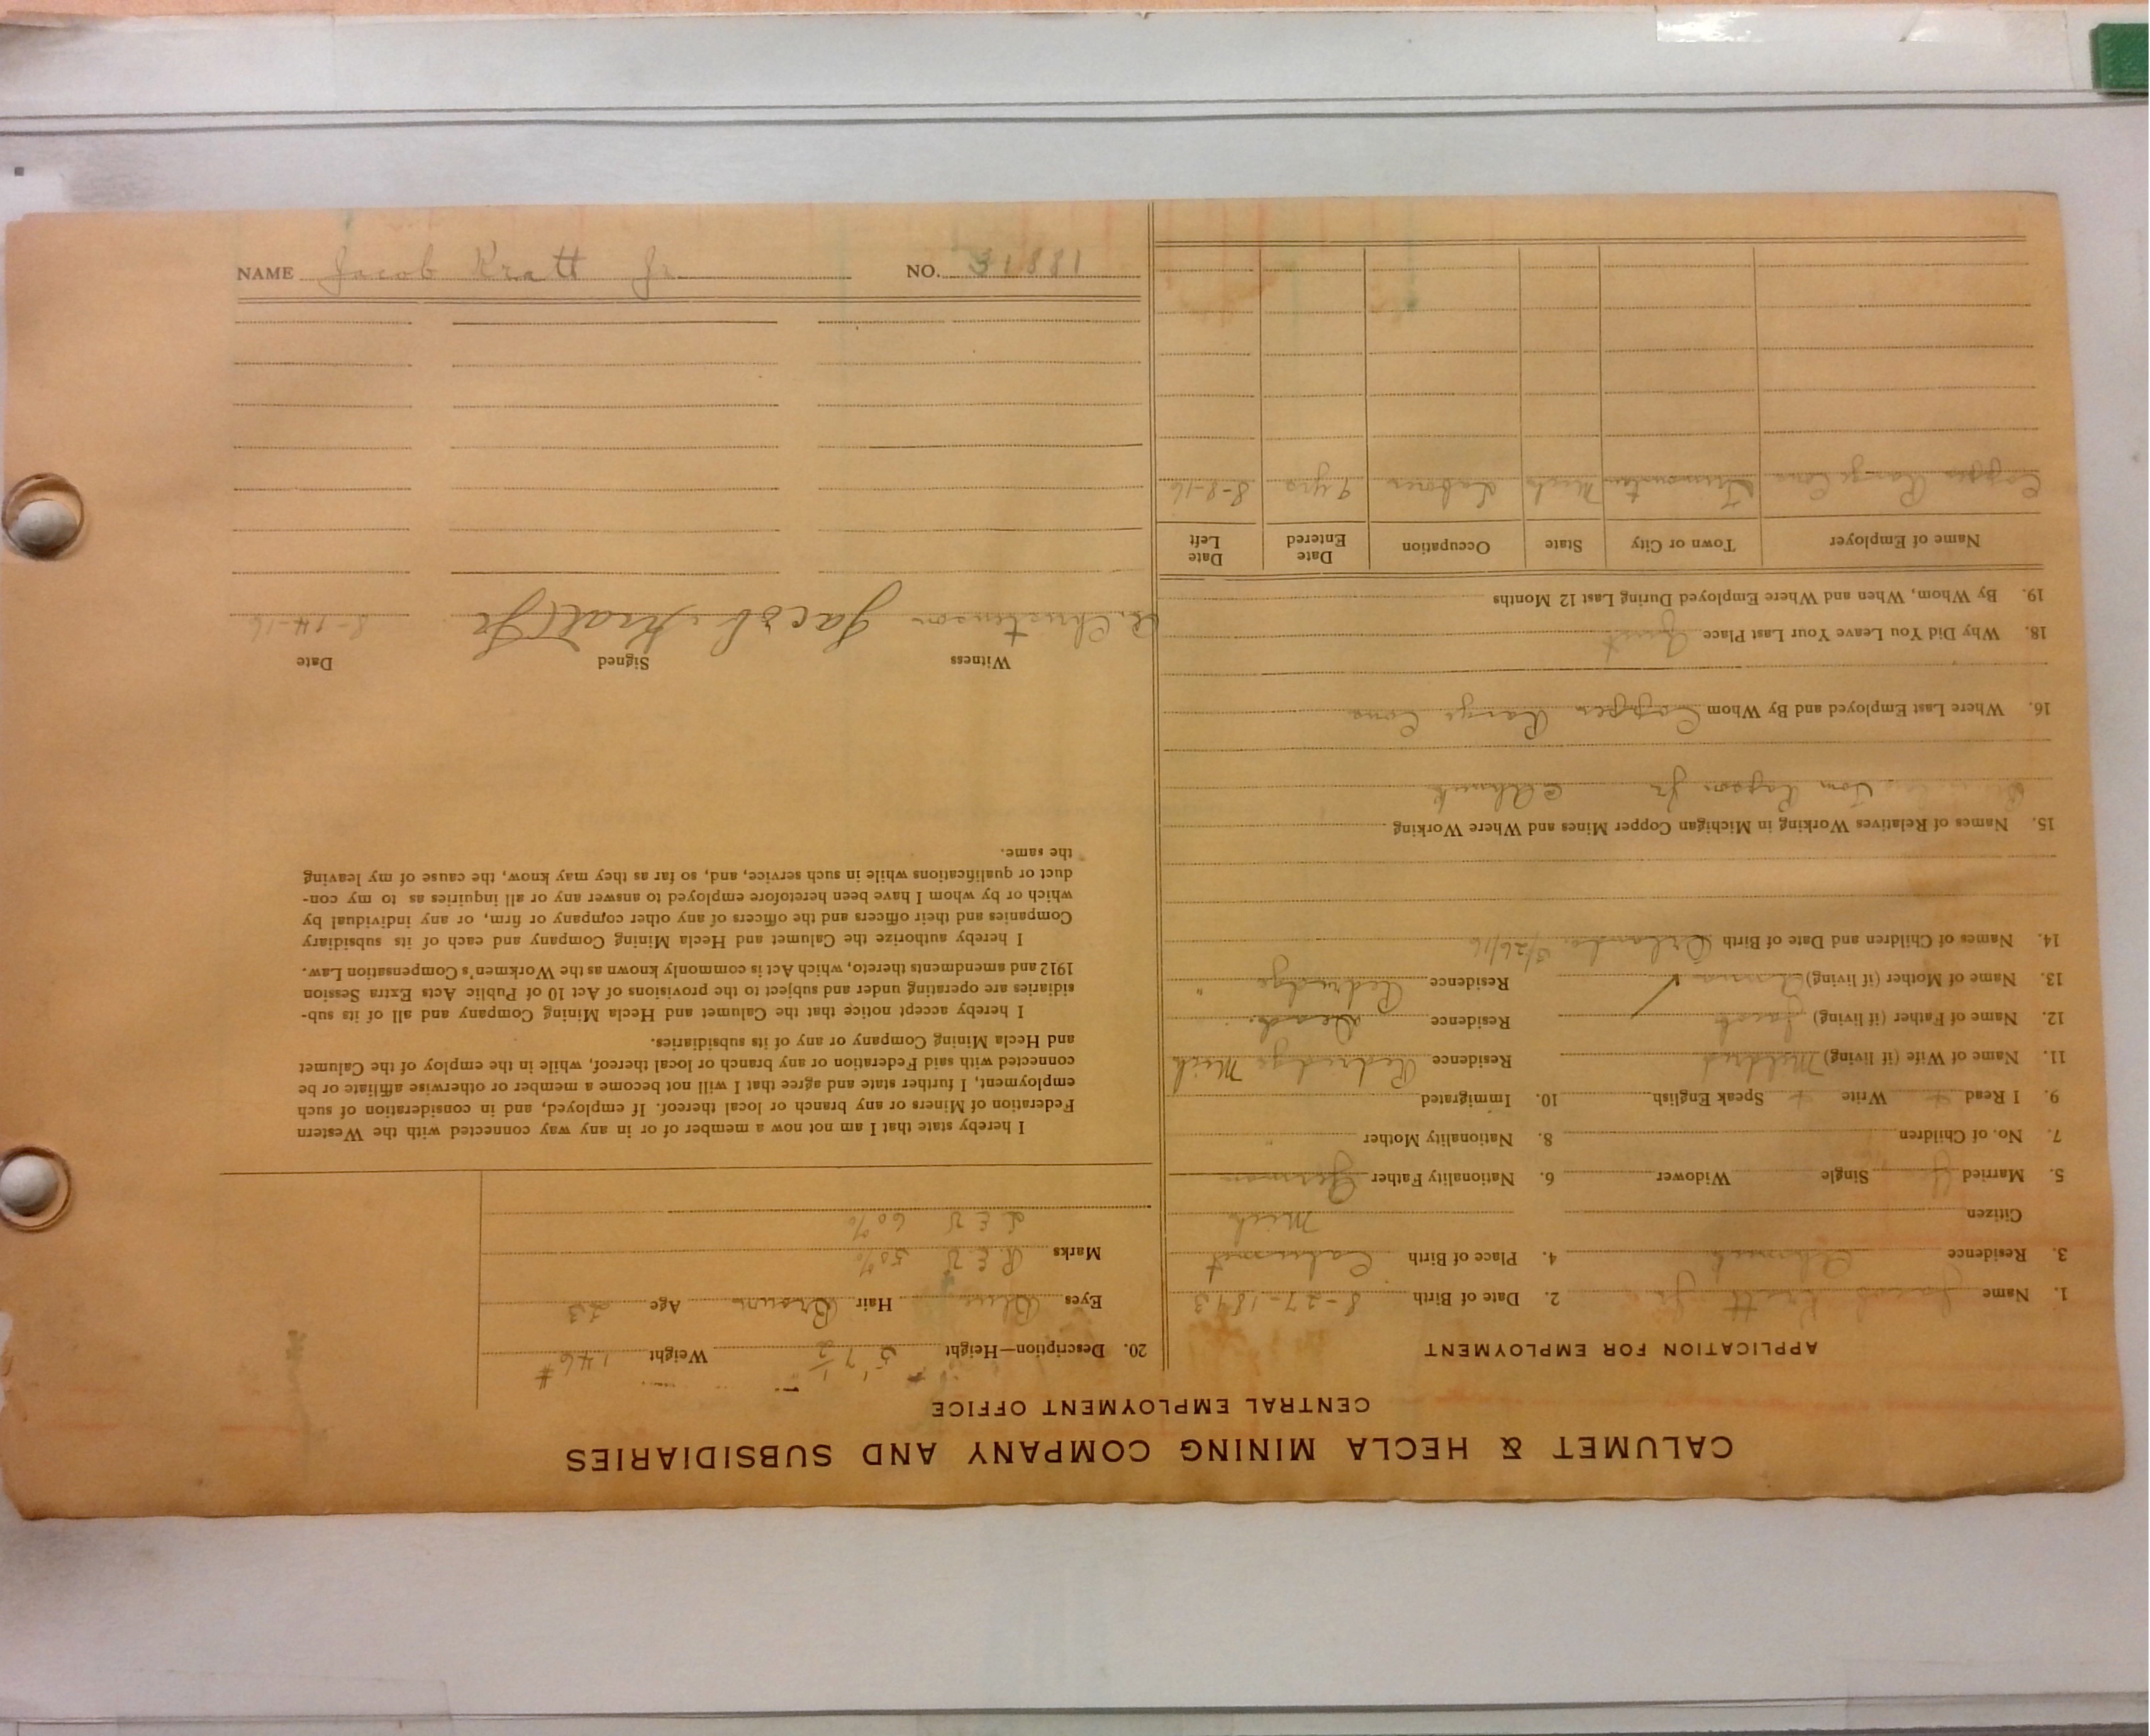 CALUMET & HECLA MINING COMPANY AND SUBSIDIARIES
CENTRAL EMPLOYMENT OFFICE
APPLICATION FOR EMPLOYMENT
1. Name Jacob Kratt Jr. 2. Date of Birth 8-27-1893
3. Residence Ahmeek 4. Place of Birth Calumet
Citizen Mich
5. Married Single Widower 6. Nationality Father German
7. No. of Children 8. Nationality Mother "
9. I Read Write Speak English 10. Immigrated
11. Name of Wife (if living) Mildred Residence Redridge Mich
12. Name of Father (if living) Jacob Residence Dead
13. Name of Mother (if living) Anna Residence Redridge "
14. Names of Children and Date of Birth /26/16
15. Names of Relatives Working in Michigan Copper Mines and Where Working
Tom Jr Ahmeek
16. Where Last Employed and By Whom Copper Range Cons
18. Why Did You Leave Your Last Place Quit
19. By Whom, When and Where Employed During Last 12 Months
Name of Employer Town or City State Occupation Date Entered Date Left
Copper Range Cons Mich Laborer 9 yrs 8-8-16
20. Description—Height 5' 7 1/2" Weight 146 #
Eyes Blue Hair Brown Age 23
Marks R E V 50%
L E V 60%
I hereby state that I am not now a member of or in any way connected with the Western
Federation of Miners or any branch or local thereof. If employed, and in consideration of such
employment, I further state and agree that I will not become a member or otherwise affiliate or be
connected with said Federation or any branch or local thereof, while in the employ of the Calumet
and Hecla Mining Company or any of its subsidiaries.
I hereby accept notice that the Calumet and Hecla Mining Company and all of its sub-
sidiaries are operating under and subject to the provisions of Act 10 of Public Acts Extra Session
1912 and amendments thereto, which Act is commonly known as the Workmen's Compensation Law.
I hereby authorize the Calumet and Hecla Mining Company and each of its subsidiary
Companies and their officers and the officers of any other company or firm, or any individual by
which or by whom I have been heretofore employed to answer any or all inquiries as to my con-
duct or qualifications while in such service, and, so far as they may know, the cause of my leaving
the same.
Witness Signed Date
Christenson Jacob Kratt Jr 8-14-16
NAME Jacob Kratt Jr. NO. 31881